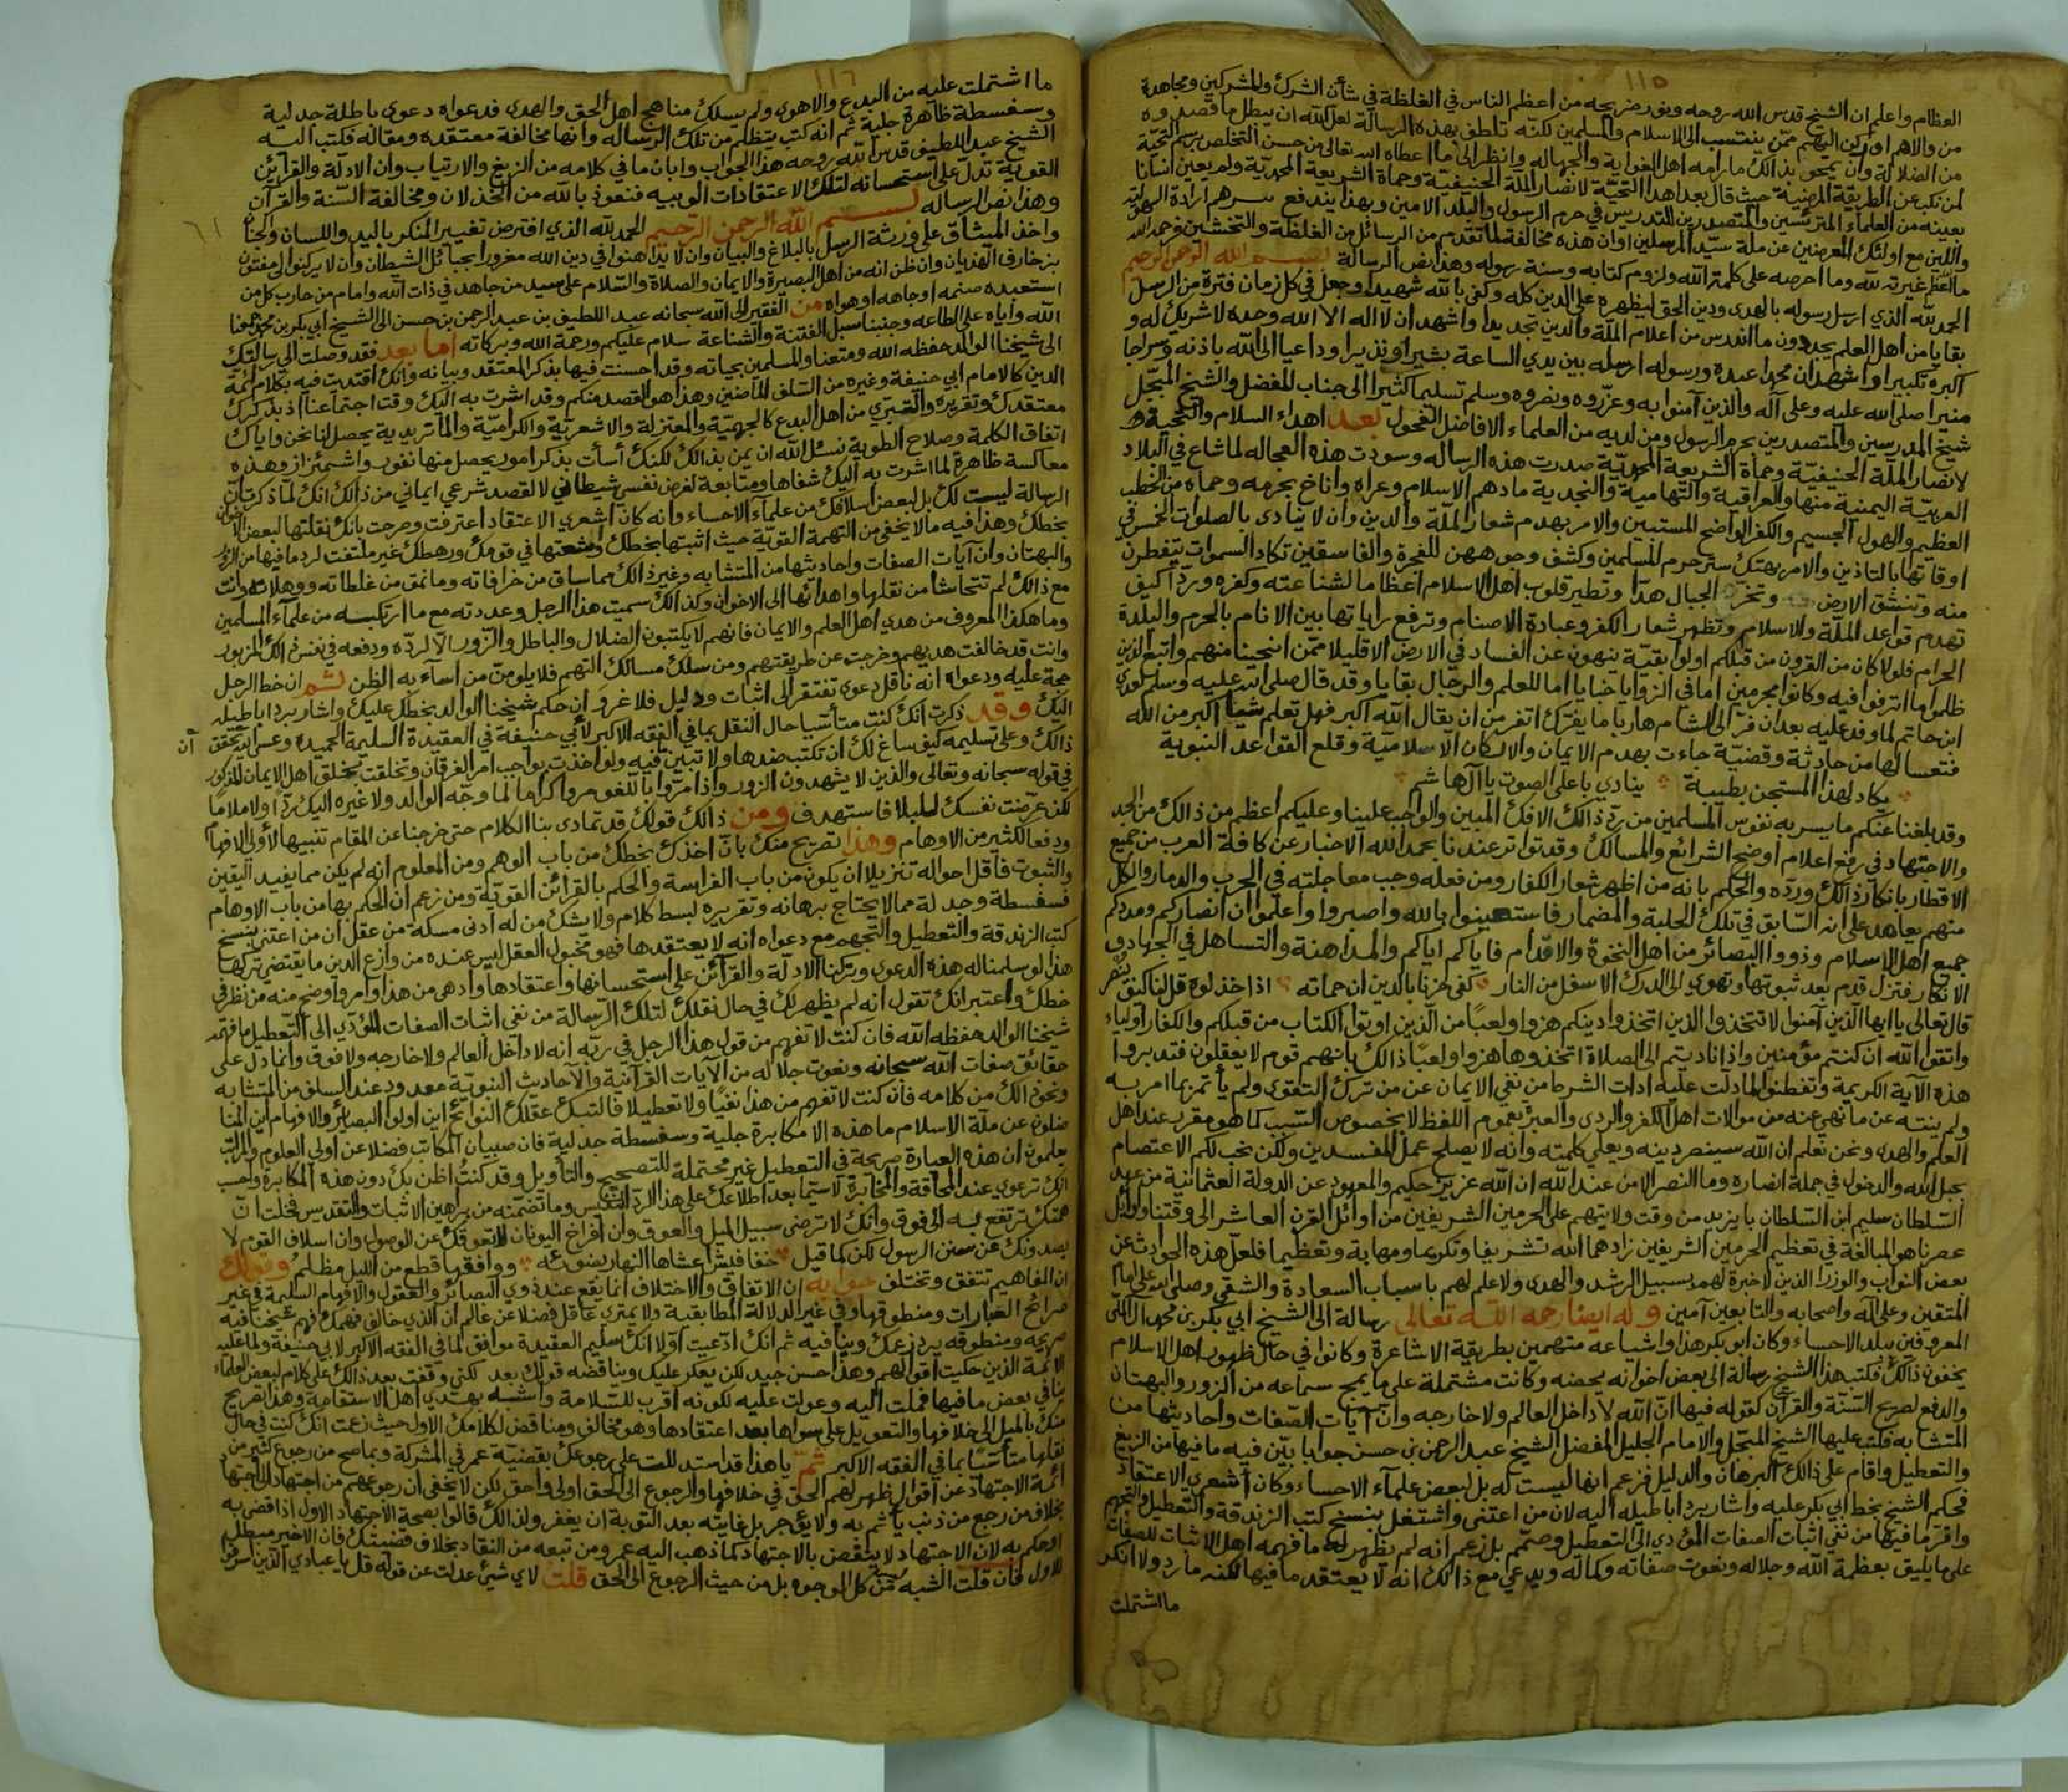 ١١٥
العظام واعلم ان الشيخ قدس الله روحه ونور ضريحه من اعظم الناس في الغلظة في شأن الشرك والمشركين ومجاهدة
من والاهم او ركن اليهم ممن ينتسب الى الاسلام والمسلمين لكنه تلطف بهذه الرسالة لعل الله ان يبطل ما قصدوه
من الضلالة وان يمحو بذالك ما رامه اهل الغواية والجهاله وانظر الى ما اعطاه الله تعالى من حسن التخلص برسم التحية
لمن نكب عن الطريقة المرضية حيث قال بعد اهداء التحية لانصار الملة الحنيفية وحماة الشريعة المحمدية ولم يعين انسانا
بعينه من العلماء المترئسين والمتصدرين للتدريس في حرم الرسول والبلد الامين وبهذا يندفع
واللين مع اولئك المعرضين عن ملة سيد المرسلين او ان هذه مخالفة لما تقدم من الرسائل من الغلظة والتخشين فرحمه الله
ما اعظم غيرته لله وما احرصه على كلمة الله ولزوم كتابه وسنة رسوله وهذا نص الرسالة بسم الله الرحمن الرحيم
الحمد لله الذي ارسل رسوله بالهدى ودين الحق ليظهره على الدين كله وكفى بالله شهيدا وجعل في كل زمان فترة من الرسل
بقايا من اهل العلم يجددون ما اندرس من اعلام الملة والدين تجديدا واشهد ان لا اله الا الله وحده لا شريك له و
اكبره تكبيرا واشهد ان محمدا عبده ورسوله ارسله بين يدي الساعة بشيرا ونذيرا وداعيا الى الله باذنه وسراجا
منيرا صلى الله عليه وعلى آله والذين آمنوا به وعزروه ونصروه وسلم تسليما كثيرا الى جناب المفضل والشيخ المبجل
شيخ المدرسين والمتصدرين بحرم الرسول ومن لديه من العلماء الافاضل الفحول بعد اهداء السلام والتحية
لانصار الملة الحنيفية وحماة الشريعة المحمدية صدرت هذه الرساله وسودت هذه العجاله لما شاع في البلاد
العربية اليمنية منها والعراقية والتهامية والنجدية ما دهم الاسلام وعراه واناخ بحرمه وحماه من الخطب
العظيم والهول الجسيم والكفر الواضح المستبين والامر بهدم شعار الملة والدين وان لا ينادى بالصلوات الخمس في
اوقاتها بالتاذين والامر بهتك ستر حرم المسلمين وكشف وجوههن للفجرة والفاسقين تكاد السموات يتفطرن
منه وتنشق الارض وتخر الجبال هدا وتطير قلوب اهل الاسلام اعظاما لشناعته وكفره وردا كيف
تهدم قواعد الملة والاسلام وتظهر شعار الكفر وعبادة الاصنام وترفع راياتها بين الانام بالحرم والبلدة
الحرام فلولا كان من القرون من قبلكم اولوا بقية ينهون عن الفساد في الارض الا قليلا ممن انجينا منهم واتبع الذين
ظلموا ما اترفوا فيه وكانوا مجرمين اما في الزوايا خبايا اما للعلم والرجال بقايا وقد قال صلى الله عليه وسلم لعدي
ابن حاتم لما وفد عليه بعد ان فر الى الشام هاربا ما يفرك اتفر من ان يقال الله اكبر فهل تعلم شيئا اكبر من الله
فتعسا لها من حادثة وقضية جاءت بهدم الايمان والاركان الاسلامية وقلع القواعد النبوية
يكاد لهذا المستجن بطيبة ينادي باعلى الصوت يا آل هاشم
وقد بلغنا عنكم ما يسر به نفوس المسلمين من رد ذالك الافك المبين والواجب علينا وعليكم اعظم من ذالك من الجد
والاجتهاد في رفع اعلام اوضح الشرائع والمسالك وقد تواتر عندنا بحمد الله الاخبار عن كافة العرب من جميع
الاقطار بانكار ذالك ورده والحكم بانه من اظهر شعار الكفار ومن فعله وجب معاجلته في الحرب والدمار والكل
منهم يعاهد على انه السابق في تلك الحلبة والمضمار فاستعينوا بالله واصبروا واعلموا ان انصاركم ومددكم
جميع اهل الاسلام وذووا البصائر من اهل النخوة والاقدام فاياكم اياكم والمداهنة والتساهل في الجهاد و
الانكار فتزل قدم بعد ثبوتها وتهوي الى الدرك الاسفل من النار كفى حزنا بالدين ان حماته اذا خذلوه قل لنا كيف ينصر
قال تعالى يا ايها الذين آمنوا لا تتخذوا الذين اتخذوا دينكم هزوا ولعبا من الذين اوتوا الكتاب من قبلكم والكفار اولياء
واتقوا الله ان كنتم مؤمنين واذا ناديتم الى الصلاة اتخذوها هزوا ولعبا ذالك بانهم قوم لا يعقلون فتدبروا
هذه الآية الكريمة وتفطنوا لما دلت عليه ادات الشرط من نفي الايمان عن من ترك التقوى ولم يأتمر بما امر به
ولم ينته عن ما نهي عنه من موالات اهل الكفر والردى والعبر بعموم اللفظ لا بخصوص السبب كما هو مقرر عند اهل
العلم والهدى ونحن نعلم ان الله سينصر دينه ويعلي كلمته وانه لا يصلح عمل المفسدين ولكن نحب لكم الاعتصام
بحبل الله والدخول في جملة انصاره وما النصر الا من عند الله ان الله عزيز حكيم والمعهود عن الدولة العثمانية من عهد
السلطان سليم ابن السلطان بايزيد من وقت ولايتهم على الحرمين الشريفين من اوائل القرن العاشر الى وقتنا واوائل
عصرنا هو المبالغة في تعظيم الحرمين الشريفين زادهما الله تشريفا وتكريما ومهابة وتعظيما فلعل هذه الحوادث عن
بعض النواب والوزرا الذين لا خبرة لهم بسبيل الرشد والهدى ولا علم لهم باسباب السعادة والشقى وصلى الله على امام
المتقين وعلى آله واصحابه والتابعين آمين وله ايضا رحمه الله تعالى رسالة الى الشيخ ابي بكر بن محمد آل الملا
المعروفين ببلد الاحساء وكان ابو بكر هذا واشياعه متهمين بطريقة الاشاعرة وكانوا في حال ظهور اهل الاسلام
يخفون ذالك فكتب هذا الشيخ رسالة الى بعض اخوانه يحضه وكانت مشتملة على ما يمج سماعه من الزور والبهتان
والدفع لصريح السنة والقرآن كقوله فيها ان الله لا داخل العالم ولا خارجه وان آيات الصفات واحاديثها من
المتشابه فكتب عليها الشيخ المبجل والامام الجليل المفضل الشيخ عبد الرحمن بن حسن جوابا بين فيه ما فيها من الزيغ
والتعطيل واقام على ذالك البرهان والدليل فزعم انها ليست له بل لبعض علماء الاحساء وكان اشعري الاعتقاد
فحكم الشيخ بخط ابي بكر عليه واشار برد اباطيله اليه لان من اعتنى واشتغل بنسخ كتب الزندقة والتعطيل والتجهم
واقر ما فيها من نفي اثبات الصفات المؤدي الى التعطيل وصمم بل زعم انه لم يظهر له ما فهمه اهل الاثبات للصفات
على ما يليق بعظمة الله وجلاله ونعوت صفاته وكماله ويدعي مع ذالك انه لا يعتقد ما فيها لكنه ما رد ولا انكر
ما اشتملت
١١٦
ما اشتملت عليه من البدع والاهوى ولم يسلك مناهج اهل الحق والهدى فدعواه دعوى باطلة جدلية
وسفسطة ظاهرة جلية ثم انه كتب يتظلم من تلك الرساله وانها مخالفة معتقده ومقاله فكتب اليه
الشيخ عبد اللطيف قدس الله روحه هذا الجواب وابان ما في كلامه من الزيغ والارتياب وان الادلة والقرائن
القوية تدل على استحسانه لتلك الاعتقادات الوبيه فنعوذ بالله من الخذلان ومخالفة السنة والقرآن
وهذا نص الرساله بسم الله الرحمن الرحيم الحمد لله الذي افترض تغيير المنكر باليد واللسان والجنان
واخذ الميثاق على ورثة الرسل بالبلاغ والبيان وان لا يداهنوا في دين الله مغرورا بحبائل الشيطان وان لا يركنوا الى مفتون
بزخارف الهذيان وان ظن انه من اهل البصيرة والايمان والصلاة والسلام على سيد من جاهد في ذات الله وامام من حارب كل من
استعبده صنمه او جاهه او هواه من الفقير الى الله سبحانه عبد اللطيف بن عبد الرحمن بن حسن الى الشيخ ابي بكر بن محمد جمعنا
الله واياه على الطاعه وجنبنا سبل الفتنة والشناعة سلام عليكم ورحمة الله وبركاته اما بعد فقد وصلت الي رسالتك
الى شيخنا الوالد حفظه الله ومتعنا والمسلمين بحياته وقد احسنت فيها بذكر المعتقد وبيانه وانك اقتديت فيه بكلام ائمة
الدين كالامام ابي حنيفة وغيره من السلف الماضين وهذا هو القصد منكم وقد اشرت به اليك وقت اجتماعنا اذ بذكرك
معتقدك وتقريره والتبري من اهل البدع كالجهمية والمعتزلة والاشعرية والكرامية والماتريدية يحصل لنا نحن واياك
اتفاق الكلمة وصلاح الطوية نسئل الله ان يمن بذالك لكنك أسأت بذكر امور يحصل منها نفور واشمئزاز وهذه
معاكسة ظاهرة لما اشرت به اليك شفاها ومتابعة لغرض نفسي شيطاني لا لقصد شرعي ايماني من ذالك انك لما ذكرت ان
الرسالة ليست لك بل لبعض اسلافك من علماء الاحساء وانه كان اشعري الاعتقاد اعترفت وصرحت بانك نقلتها لبعض الاخوان
بخطك وهذا فيه ما لا يخفى من التهمة القوية حيث اثبتها بخطك وشعتها في قومك ورهطك غير ملتفت لرد ما فيها من الزور
والبهتان وان آيات الصفات واحاديثها من المتشابه وغير ذالك مما ساق من خرافاته وما نمق من غلطاته
مع ذالك لم تتحاشا من نقلها واهدائها الى الاخوان وكذالك سميت هذا الرجل وعددته مع ما ارتكبه من علماء المسلمين
وما هكذا المعروف من هدي اهل العلم والايمان فانهم لا يكتبون الضلال والباطل والزور الا لرده ودفعه في نفس ذالك المزبور
وانت قد خالفت هديهم وخرجت عن طريقتهم ومن سلك مسالك التهم فلا يلومن من اساء به الظن ثم ان خط الرجل
حجة عليه ودعواه انه ناقل دعوى تفتقر الى اثبات ودليل فلا غرو ان حكم شيخنا الوالد بخطك عليك واشار برد اباطيله
اليك وقد ذكرت انك كنت متأسيا حال النقل بما في الفقه الاكبر لابي حنيفة في العقيدة السليمة الحميدة وعسى ان يتحقق
ذالك وعلى تسليمه كيف ساغ لك ان تكتب ضدها ولا تبين فيه ولو اخذت بواجب امر الفرقان وتخلقت بخلق اهل الايمان المذكور
في قوله سبحانه وتعالى والذين لا يشهدون الزور واذا مروا باللغو مروا كراما لما وجه الوالد ولا غيره اليك ردا ولا ملاما
لكن عرضت نفسك للبلا فاستهدف ومن ذالك قولك قد تمادى بنا الكلام حتى خرجنا عن المقام تنبيها لأولي الافهام
ودفعا لكثير من الاوهام وهذا تصريح منك بان اخذك بخطك من باب الوهم ومن المعلوم انه لم يكن مما يفيد اليقين
والثبوت فأقل احواله تنزيلا ان يكون من باب الفراسة والحكم بالقرائن القوية ومن زعم ان الحكم بها من باب الاوهام
فسفسطة وجدله مما لا يحتاج برهانه وتقريره لبسط كلام ولا يشك من له ادنى مسكة من عقل ان من اعتنى بنسخ
كتب الزندقة والتعطيل والتجهم مع دعواه انه لا يعتقدها فهو مخبول العقل ليس عنده من وازع الدين ما يقتضي تركها
هذا لو سلمنا له هذه الدعوى وتركنا الادلة والقرائن على استحسانها واعتقادها وادهى من هذا وأمر واوضح منه من نظر في
خطك واعتبر انك تقول انه لم يظهر لك في حال نقلك لتلك الرسالة من نفي اثبات الصفات المؤدي الى التعطيل ما فهمه
شيخنا الوالد حفظه الله فان كنت لا تفهم من قول هذا الرجل في ربه انه لا داخل العالم ولا خارجه ولا فوق وانما دل على
حقائق صفات الله سبحانه ونعوت جلاله من الآيات القرآنية والاحاديث النبوية معدود عند السلف من المتشابه
ونحو ذالك من كلامه فان كنت لا تفهم من هذا نفيا ولا تعطيلا فالتبك عقلك النوائح اين اولوا البصائر والافهام اين المنا
ضلون عن ملة الاسلام ما هذه الا مكابرة جلية وسفسطة جدلية فان صبيان المكاتب فضلا عن اولي العلوم والمراتب
يعلمون ان هذه العبارة صريحة في التعطيل غير محتملة للتصحيح والتأويل وقد كنت اظن بك دون هذه المكابرة واحسب
انك ترعوي عند المحاقة والمخابرة لا سيما بعد اطلاعك على هذا الرد النفيس وما تضمنته من براهين الاثبات والتقديس فخلت ان
همتك ترتفع به الى فوق وانك لا ترضى سبيل الميل والعوق وان افراخ اليونان لا تعوقك عن الوصول وان اسلاف القوم لا
يصدونك عن سنن الرسول لكن كما قيل خفافيش اعشاها النهار بضوئه ووافقها قطع من الليل مظلم وقولك
ان المفاهيم تتفق وتختلف جوابه ان الاتفاق والاختلاف انما يقع عند ذوي البصائر والعقول والافهام السليمة في غير
صرائح العبارات ومنطوقها وفي غير الدلالة المطابقية ولا يمتري عاقل فضلا عن عالم ان الذي خالف فهمك وفهم شيخنا فيه
صريحه ومنطوقه يرد زعمك وينافيه ثم انك ادعيت اولا انك سليم العقيدة موافق لما في الفقه الاكبر لابي حنيفة ولما عليه
الائمة الذين حكيت اقوالهم وهذا حسن جيد لكن يعكر عليك ويناقضه قولك بعد لكني وقفت بعد ذالك على كلام لبعض العلماء
ينافي بعض ما فيها فملت اليه وعولت عليه لكونه اقرب للسلامة واشبه بهدي اهل الاستقامة وهذا تصريح
منك بالميل الى خلافها والتعويل على سواها بعد اعتقادها وهو مخالف ومناقض لكلامك الاول حيث زعمت انك كنت في حال
نقلها متأسيا بما في الفقه الاكبر ثم يا هذا قد استدللت على رجوعك بقضية عمر في المشركة وبما صح من رجوع كثير من
ائمة الاجتهاد عن اقوال ظهر لهم الحق في خلافها والرجوع الى الحق اولى واحق لكن لا يخفى ان رجوعهم من اجتهاد الى اجتهاد
بخلاف من رجع من ذنب يأثم به ولا يؤجر بل غايته بعد التوبة ان يغفر ولذالك قالوا بصحة الاجتهاد الاول اذا قضي به
او حكم به لان الاجتهاد لا ينتقض بالاجتهاد كما ذهب اليه عمر ومن تبعه من النقاد بخلاف قضيتك فان الاخير مبطل
للاول فان قلت الشبه من كل الوجوه بل من حيث الرجوع الى الحق قلت لاي شيء عدلت عن قوله قل يا عبادي الذين اسرفوا